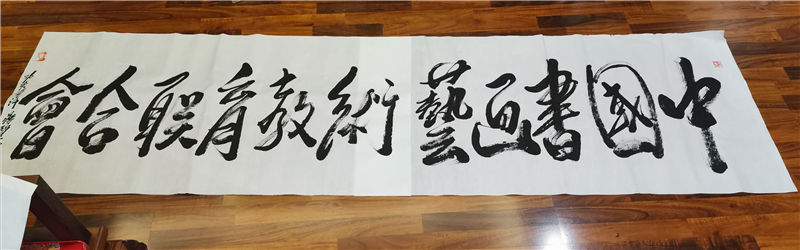 中國書画藝術教育联合會